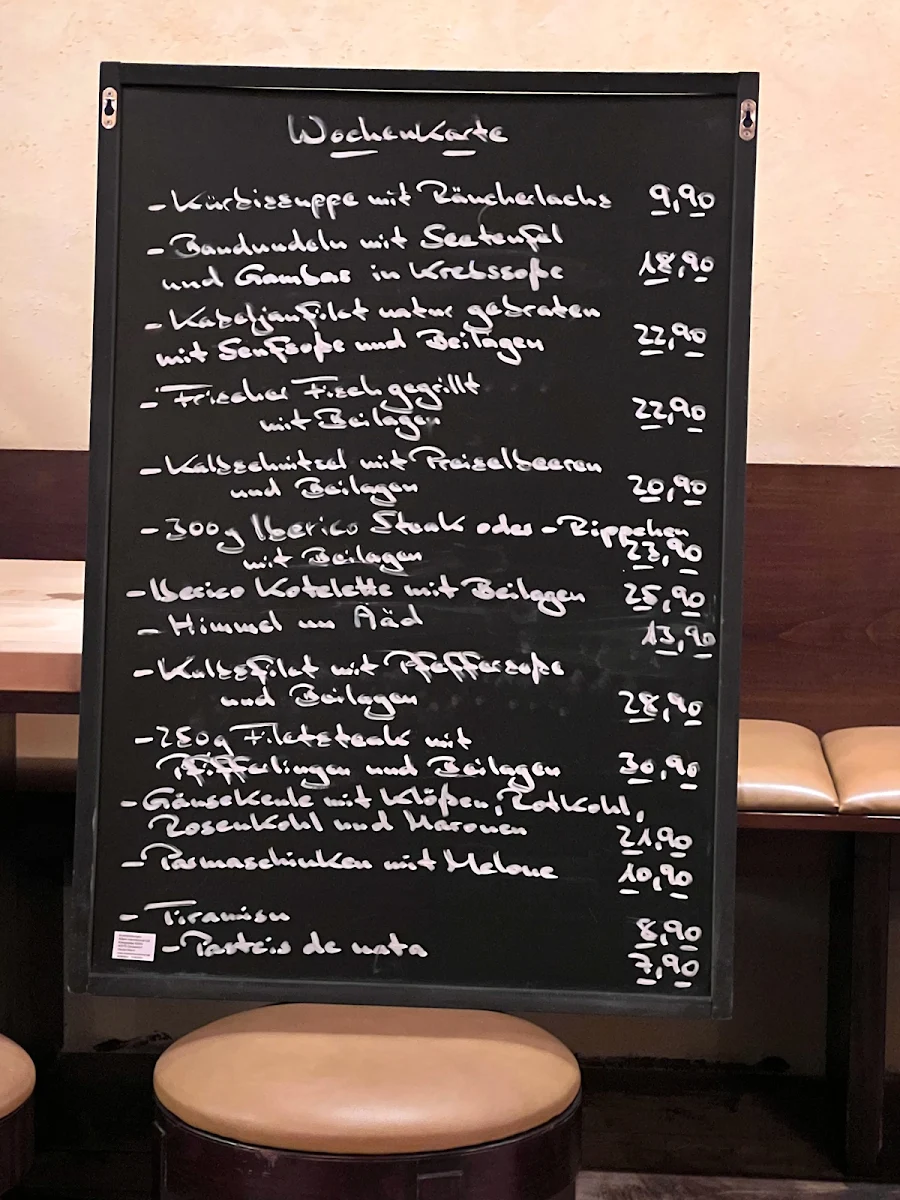 Wochenkarte
- Kürbissuppe mit Räucherlachs 9,90
- Bandnudeln mit Seeteufel
und Gambas in Krebssoße 18,90
- Kabeljaufilet natur gebraten
mit Senfsoße und Beilagen 22,90
- Frischer Fisch gegrillt
mit Beilagen 22,90
- Kalbschnitzel mit Preiselbeeren
und Beilagen 20,90
- 300g Iberico Steak oder - Rippchen
mit Beilagen 23,90
- Iberico Kotelette mit Beilagen 25,90
- Himmel un Ääd 13,90
- Kalbsfilet mit Pfeffersoße
und Beilagen 28,90
- 250g Filetsteak mit
Pfifferlingen und Beilagen 30,90
- Gänsekeule mit Klößen, Rotkohl,
Rosenkohl und Maronen 21,90
- Parmaschinken mit Melone 10,90
- Tiramisu 8,90
- Pasteis de nata 7,90